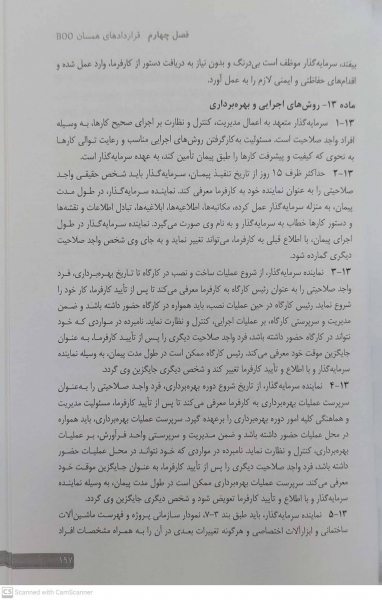 فصل چهارم قراردادهای همسان BOO
بیفتد، سرمایه‌گذار موظف است بی‌درنگ و بدون نیاز به دریافت دستور از کارفرما، وارد عمل شده و
اقدام‌های حفاظتی و ایمنی لازم را به عمل آورد.
ماده ۱۳- روش‌های اجرایی و بهره‌برداری
۱۳-۱ سرمایه‌گذار متعهد به اعمال مدیریت، کنترل و نظارت بر اجرای صحیح کارها، به وسیله
افراد واجد صلاحیت است. مسئولیت به‌کارگرفتن روش‌های اجرایی مناسب و رعایت توالی کارها
به نحوی که کیفیت و پیشرفت کارها را طبق پیمان تأمین کند، به عهده سرمایه‌گذار است.
۱۳-۲ حداکثر ظرف ۱۵ روز از تاریخ تنفیذ پیمان، سرمایه‌گذار باید شخص حقیقی واجد
صلاحیتی را به عنوان نماینده خود به کارفرما معرفی کند. نماینده سرمایه‌گذار، در طول مدت
پیمان، به منزله سرمایه‌گذار عمل کرده، مکاتبه‌ها، اطلاعیه‌ها، ابلاغیه‌ها، تبادل اطلاعات و نقشه‌ها
و دستور کارها خطاب به سرمایه‌گذار و به نام وی صورت می‌گیرد. نماینده سرمایه‌گذار در طول
اجرای پیمان، با اطلاع قبلی به کارفرما، می‌تواند تغییر نماید و به جای وی شخص واجد صلاحیت
دیگری گمارده شود.
۱۳-۳ نماینده سرمایه‌گذار، از شروع عملیات ساخت و نصب در کارگاه تا تاریخ بهره‌برداری، فرد
واجد صلاحیتی را به عنوان رئیس کارگاه به کارفرما معرفی می‌کند تا پس از تأیید کارفرما، کار خود را
شروع نماید. رئیس کارگاه در حین عملیات نصب، باید همواره در کارگاه حضور داشته باشد و ضمن
مدیریت و سرپرستی کارگاه، بر عملیات اجرایی، کنترل و نظارت نماید. نامبرده در مواردی که خود
نتواند در کارگاه حضور داشته باشد، فرد واجد صلاحیت دیگری را پس از تأیید کارفرما، به عنوان
جایگزین موقت خود معرفی می‌کند. رئیس کارگاه ممکن است در طول مدت پیمان، به وسیله نماینده
سرمایه‌گذار و با اطلاع و تأیید کارفرما تغییر کند و شخص دیگری جایگزین وی گردد.
۱۳-۴ نماینده سرمایه‌گذار، از تاریخ شروع دوره بهره‌برداری، فرد واجد صلاحیتی را به‌عنوان
سرپرست عملیات بهره‌برداری به کارفرما معرفی می‌کند تا پس از تأیید کارفرما، مسئولیت مدیریت
و هماهنگی کلیه امور دوره بهره‌برداری را برعهده گیرد. سرپرست عملیات بهره‌برداری، باید همواره
در محل عملیات حضور داشته باشد و ضمن مدیریت و سرپرستی واحد فرآورش، بر عملیات
بهره‌برداری، کنترل و نظارت نماید. نامبرده در مواردی که خود نتواند در محل عملیات حضور
داشته باشد، فرد واجد صلاحیت دیگری را پس از تأیید کارفرما، به عنوان جایگزین موقت خود
معرفی می‌کند. سرپرست عملیات بهره‌برداری ممکن است در طول مدت پیمان، به وسیله نماینده
سرمایه‌گذار و با اطلاع و تأیید کارفرما تعویض شود و شخص دیگری جایگزین وی گردد.
۱۳-۵ نماینده سرمایه‌گذار، باید طبق بند ۳-۷، نمودار سازمانی پروژه و فهرست ماشین‌آلات
ساختمانی و ابزارآلات اختصاصی و هرگونه تغییرات بعدی در آن را به همراه مشخصات افراد
۱۹۷
CS Scanned with CamScanner